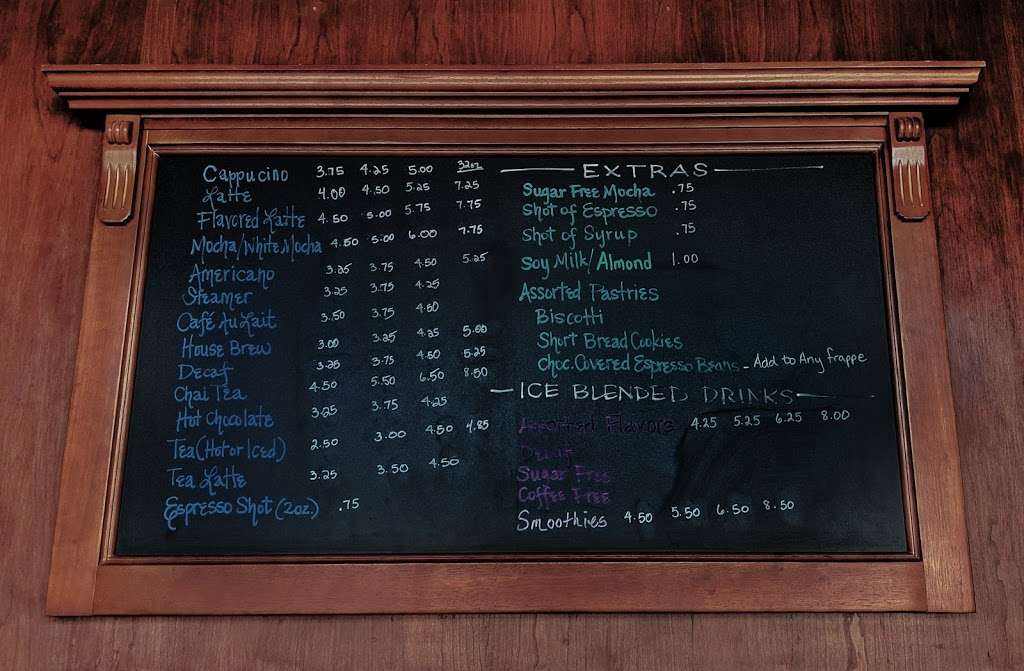 Cappucino 3.75 4.25 5.00 32oz.
Latte 4.00 4.50 5.25 7.25
Flavored Latte 4.50 5.00 5.75 7.75
Mocha/White Mocha 4.50 5.00 6.00 7.75
Americano 3.25 3.75 4.50 5.25
Steamer 3.25 3.75 4.25
Café Au Lait 3.50 3.75 4.50
House Brew 3.00 3.25 4.25 5.00
Decaf 3.25 3.75 4.50 5.25
Chai Tea 4.50 5.50 6.50 8.50
Hot Chocolate 3.25 3.75 4.25
Tea (Hot or Iced) 2.50 3.00 4.50 4.85
Tea Latte 3.25 3.50 4.50
Espresso Shot (2oz.) .75
EXTRAS
Sugar Free Mocha .75
Shot of Espresso .75
Shot of Syrup .75
Soy Milk/Almond 1.00
Assorted Pastries
Biscotti
Short Bread Cookies
Choc. Covered Espresso Beans - Add to Any frappe
ICE BLENDED DRINKS
Assorted Flavors 4.25 5.25 6.25 8.00
Sugar Free
Coffee Free
Smoothies 4.50 5.50 6.50 8.50